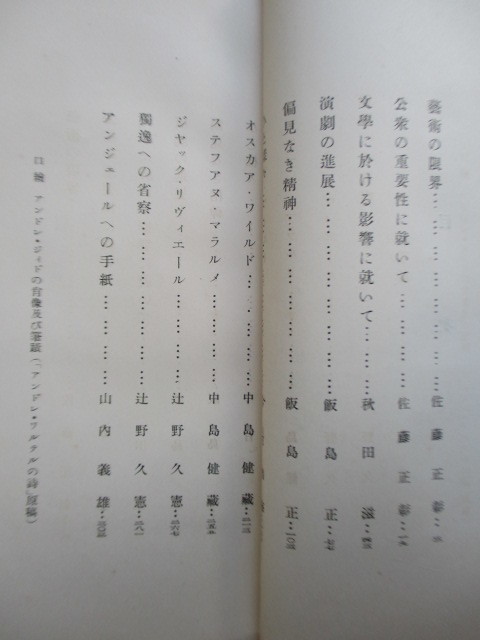 藝術の限界………………佐藤正彰…三
公衆の重要性に就いて…………佐藤正彰…一九
文學に於ける影響に就いて………秋田滋…四五
演劇の進展………………飯島正…七七
偏見なき精神………………飯島正…一〇三
オスカア・ワイルド…………中島健藏…二一三
ステファヌ・マラルメ…………中島健藏…二五五
ジャック・リヴィエール…………辻野久憲…二六七
獨逸への省察………………辻野久憲…二八一
アンジェールへの手紙…………山内義雄…三〇三
口繪 アンドレ・ジィドの肖像及び筆蹟(「アンドレ・ワルテルの詩」原稿)